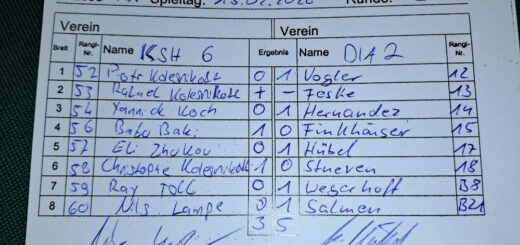 Spieltag: 15.02.2026 Runde:
Verein Verein
Brett Rangl.-Nr. Name KSH 6 Ergebnis Name DIA 2 Rangl.-Nr.
1 52 Piotr Kolesnikok 0 1 Vogler 12
2 53 Rafael Kolesnikok + - Feske 13
3 54 Yannick Koch 0 1 Hernandez 14
4 56 Baki 1 0 Finkhäuser 15
5 57 Eli Zhukov 0 1 Hübel 17
6 58 Christophe Kolesnikok 1 0 Stueven 18
7 59 Ray Toll 0 1 Wegerhoff B8
8 60 Nils Lampe 0 1 Salmen B21
3 5